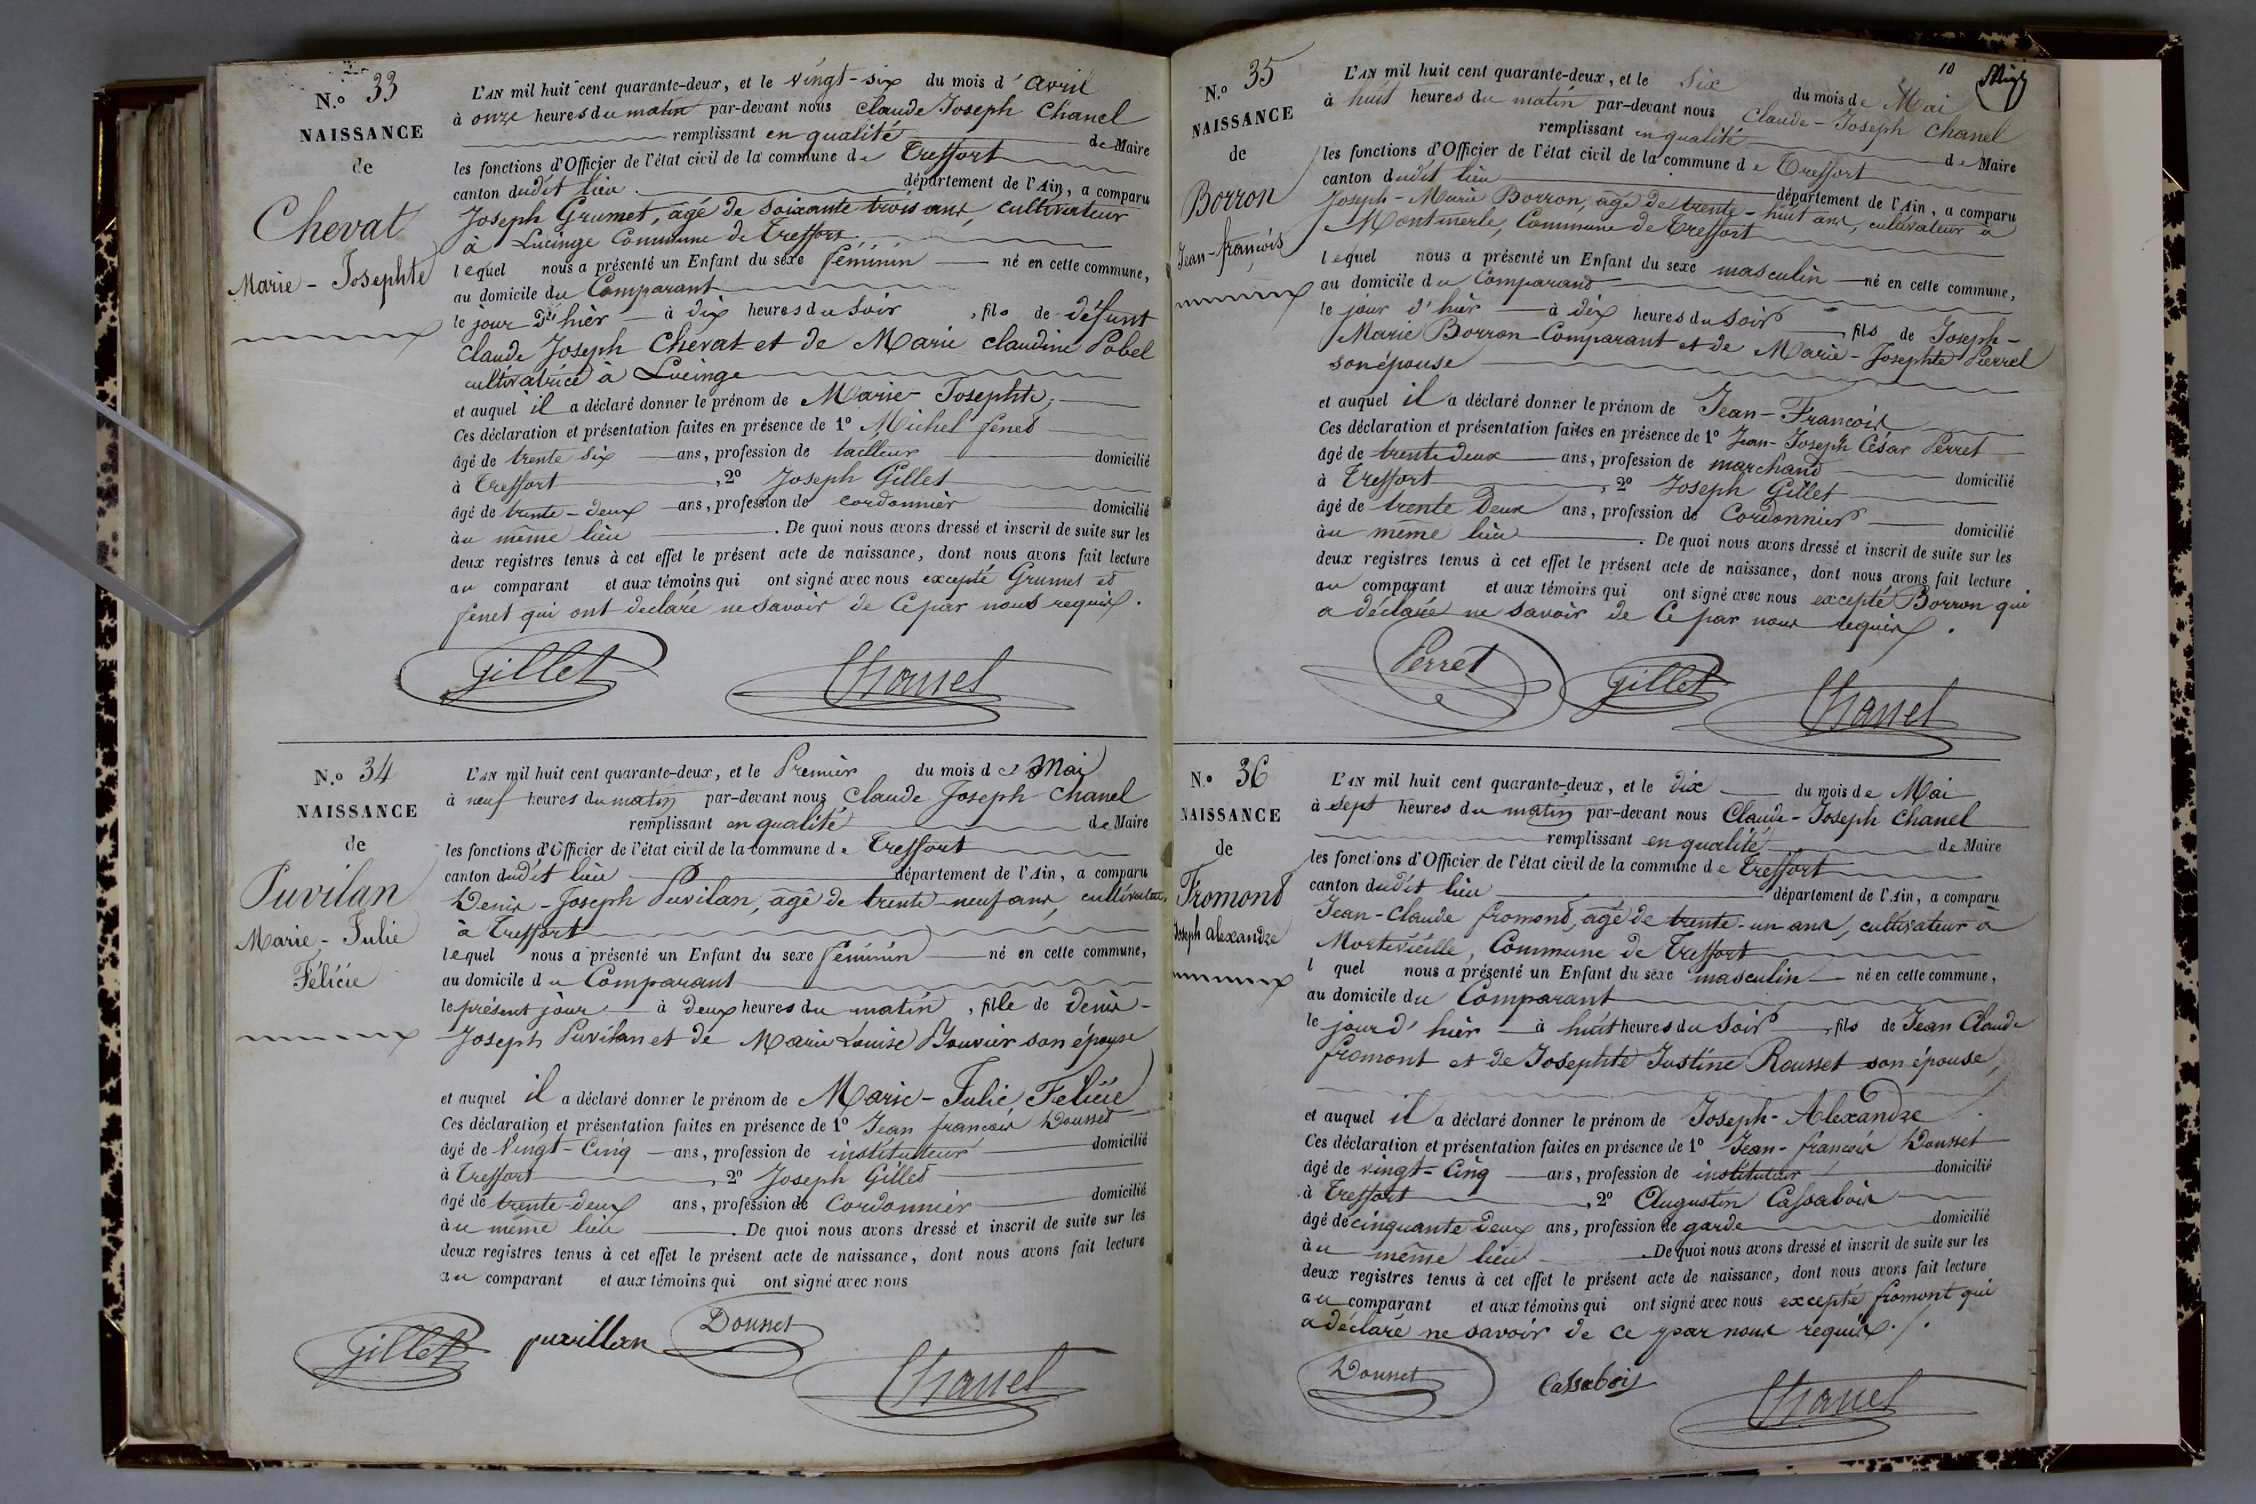 N.o 33
NAISSANCE
de
Chevat
Marie - Josephte
L'AN mil huit cent quarante-deux, et le vingt-six du mois d'avril
à onze heures du matin par-devant nous Claude Joseph Chanel
remplissant en qualité de Maire
les fonctions d'Officier de l'état civil de la commune de Treffort
canton dudit lieu département de l'Ain, a comparu
Joseph Grumet, âgé de soixante trois ans, cultivateur
à Lucinge Commune de Treffort
lequel nous a présenté un Enfant du sexe féminin né en cette commune,
au domicile du Comparant
le jour d'hièr à dix heures du soir, fils de défunt
Claude Joseph Chevat et de Marie Claudine Pobel
cultivatrice à Lucinge
et auquel il a déclaré donner le prénom de Marie - Josephte,
Ces déclaration et présentation faites en présence de 1o Michel fenet
âgé de trente six ans, profession de tailleur domicilié
à Treffort, 2o Joseph Gillet
âgé de trente-deux ans, profession de cordonnièr domicilié
àu même lieu. De quoi nous avons dressé et inscrit de suite sur les
deux registres tenus à cet effet le présent acte de naissance, dont nous avons fait lecture
au comparant et aux témoins qui ont signé avec nous excepté Grumet et
fenet qui ont déclaré ne savoir de ce par nous requis.
Gillet Chanel
N.o 34
NAISSANCE
de
Puvilan
Marie - Julie
Félicie
L'AN mil huit cent quarante-deux, et le Premièr du mois de Mai
à neuf heures du matin par-devant nous Claude Joseph Chanel
remplissant en qualité de Maire
les fonctions d'Officier de l'état civil de la commune de Treffort
canton dudit lieu département de l'Ain, a comparu
Denis - Joseph Puvilan, âgé de trente-neuf ans, cultivateur
à Treffort
lequel nous a présenté un Enfant du sexe féminin né en cette commune,
au domicile du Comparant
le présent jour à deux heures du matin, fille de denis -
Joseph Puvilan et de Marie Louise Bouvier son épouse
et auquel il a déclaré donner le prénom de Marie - Julie Felicie
Ces déclaration et présentation faites en présence de 1o Jean françois Dousset
âgé de Vingt-Cinq ans, profession de instituteur domicilié
à Treffort, 2o Joseph Gillet
âgé de trente-deux ans, profession de Cordonnièr domicilié
àu même lieu. De quoi nous avons dressé et inscrit de suite sur les
deux registres tenus à cet effet le présent acte de naissance, dont nous avons fait lecture
au comparant et aux témoins qui ont signé avec nous
Gillet puvillan Dousset Chanel
10
N.o 35
NAISSANCE
de
Borron
Jean-françois
L'AN mil huit cent quarante-deux, et le Six du mois de Mai
à huit heures du matin par-devant nous Claude-Joseph Chanel
remplissant en qualité de Maire
les fonctions d'Officier de l'état civil de la commune de Treffort
canton dudit lieu département de l'Ain, a comparu
Joseph-Marie Borron, âgé de trente-huit ans, cultivateur à
Montmerle, Commune de Treffort
lequel nous a présenté un Enfant du sexe masculin né en cette commune,
au domicile du Comparant
le jour d'hièr à dix heures du soir fils de Joseph-
Marie Borron Comparant et de Marie-Josephte Pierrel
son épouse
et auquel il a déclaré donner le prénom de Jean-François
Ces déclaration et présentation faites en présence de 1o Jean-Joseph César Perret
âgé de trente deux ans, profession de marchand domicilié
à Treffort, 2o Joseph Gillet
âgé de trente Deux ans, profession de Cordonnier domicilié
àu même lieu. De quoi nous avons dressé et inscrit de suite sur les
deux registres tenus à cet effet le présent acte de naissance, dont nous avons fait lecture
au comparant et aux témoins qui ont signé avec nous excepté Borron qui
a déclaré ne savoir de Ce par nous requis.
Perret Gillet Chanel
N.o 36
NAISSANCE
de
Fromond
Joseph alexandre
L'AN mil huit cent quarante-deux, et le dix du mois de Mai
à sept heures du matin par-devant nous Claude-Joseph Chanel
remplissant en qualité de Maire
les fonctions d'Officier de l'état civil de la commune de Treffort
canton dudit lieu département de l'Ain, a comparu
Jean-Claude fromond, âgé de trente-un ans, cultivateur à
Mortevieille, Commune de Treffort
l quel nous a présenté un Enfant du sexe masculin né en cette commune,
au domicile du Comparant
le jour d'hièr à huit heures du soir, fils de Jean Claude
fromont et de Josephte Justine Rousset son épouse,
et auquel il a déclaré donner le prénom de Joseph-Alexandre
Ces déclaration et présentation faites en présence de 1o Jean-françois Dousset
âgé de vingt-Cinq ans, profession de instituteur domicilié
à Treffort, 2o Augustin Cassabois
âgé de cinquante deux ans, profession de garde domicilié
àu même lieu. De quoi nous avons dressé et inscrit de suite sur les
deux registres tenus à cet effet le présent acte de naissance, dont nous avons fait lecture
au comparant et aux témoins qui ont signé avec nous excepté fromont qui
a déclaré ne savoir de ce par nous requis./.
Dousset Cassabois Chanel